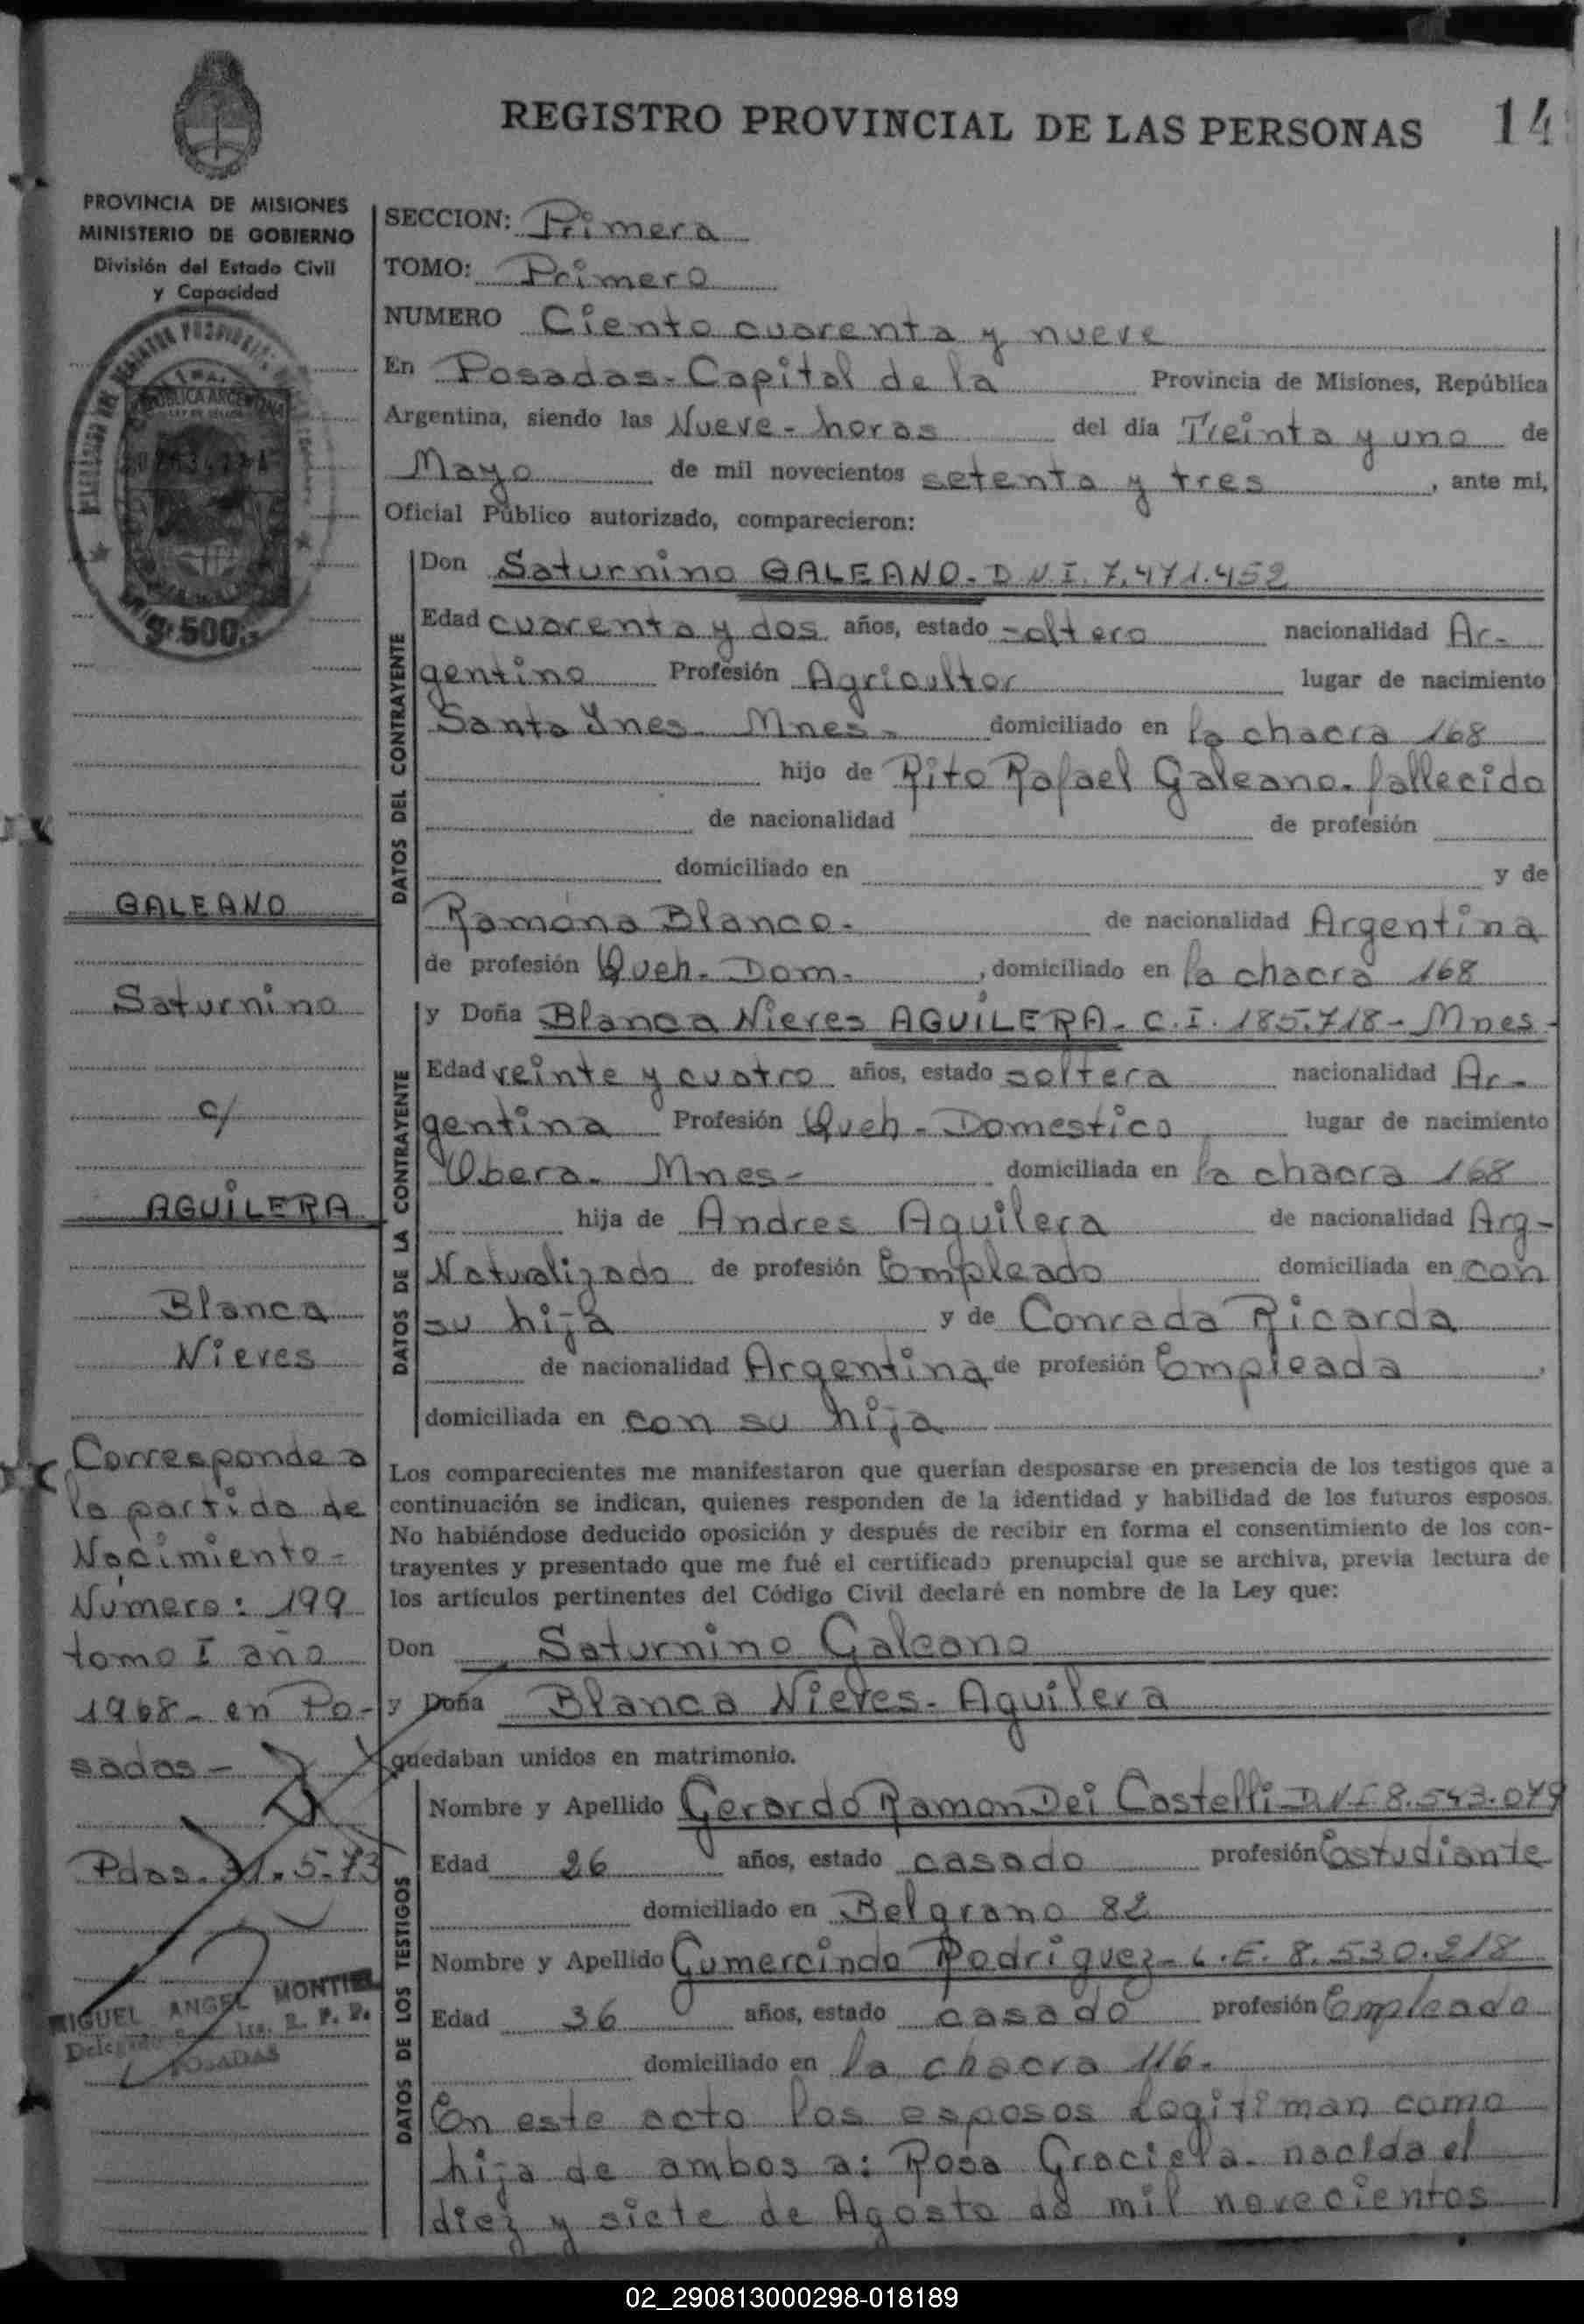 REGISTRO PROVINCIAL DE LAS PERSONAS
14
PROVINCIA DE MISIONES
MINISTERIO DE GOBIERNO
División del Estado Civil
y Capacidad
$ 500.-
GALEANO
Saturnino
c/
AGUILERA
Blanca
Nieves
Corresponde a
la partida de
Nacimiento-
Número: 199
tomo I año
1968- en Po-
sadas-
Pdas. 31.5-73
MIGUEL ANGEL MONTIEL
POSADAS
SECCION: Primera
TOMO: Primero
NUMERO Ciento cuarenta y nueve
En Posadas-Capital de la Provincia de Misiones, República
Argentina, siendo las Nueve-horas del día Treinta y uno de
Mayo de mil novecientos setenta y tres, ante mi,
Oficial Público autorizado, comparecieron:
DATOS DEL CONTRAYENTE
Don Saturnino GALEANO- D N I. 7.471.452
Edad cuarenta y dos años, estado soltero nacionalidad Ar-
gentino Profesión Agricultor lugar de nacimiento
Santa Ynes- Mnes- domiciliado en la chacra 168
hijo de Rito Rafael Galeano- fallecido
de nacionalidad de profesión
domiciliado en y de
Ramona Blanco- de nacionalidad Argentina
de profesión Queh- Dom-, domiciliado en la chacra 168
DATOS DE LA CONTRAYENTE
y Doña Blanca Nieves AGUILERA- C.I. 185.718- Mnes-
Edad veinte y cuatro años, estado soltera nacionalidad Ar-
gentina Profesión Queh-Domestico lugar de nacimiento
Obera- Mnes- domiciliada en la chacra 168
hija de Andres Aguilera de nacionalidad Arg-
Naturalizado de profesión Empleado domiciliada en con
su hija y de Conrada Ricarda
de nacionalidad Argentina de profesión Empleada,
domiciliada en con su hija
Los comparecientes me manifestaron que querían desposarse en presencia de los testigos que a
continuación se indican, quienes responden de la identidad y habilidad de los futuros esposos.
No habiéndose deducido oposición y después de recibir en forma el consentimiento de los con-
trayentes y presentado que me fué el certificado prenupcial que se archiva, previa lectura de
los artículos pertinentes del Código Civil declaré en nombre de la Ley que:
Don Saturnino Galeano
y Doña Blanca Nieves- Aguilera
quedaban unidos en matrimonio.
DATOS DE LOS TESTIGOS
Nombre y Apellido Gerardo Ramon Dei Castelli- D.N.I 8.543.079
Edad 26 años, estado casado profesión Estudiante
domiciliado en Belgrano 82
Nombre y Apellido Gumercindo Rodriguez- L.E. 8.530.218
Edad 36 años, estado casado profesión Empleado
domiciliado en la chacra 116-
En este acto los esposos legitiman como
hija de ambos a: Rosa Graciela- nacida el
diez y siete de Agosto de mil novecientos
02_290813000298-018189